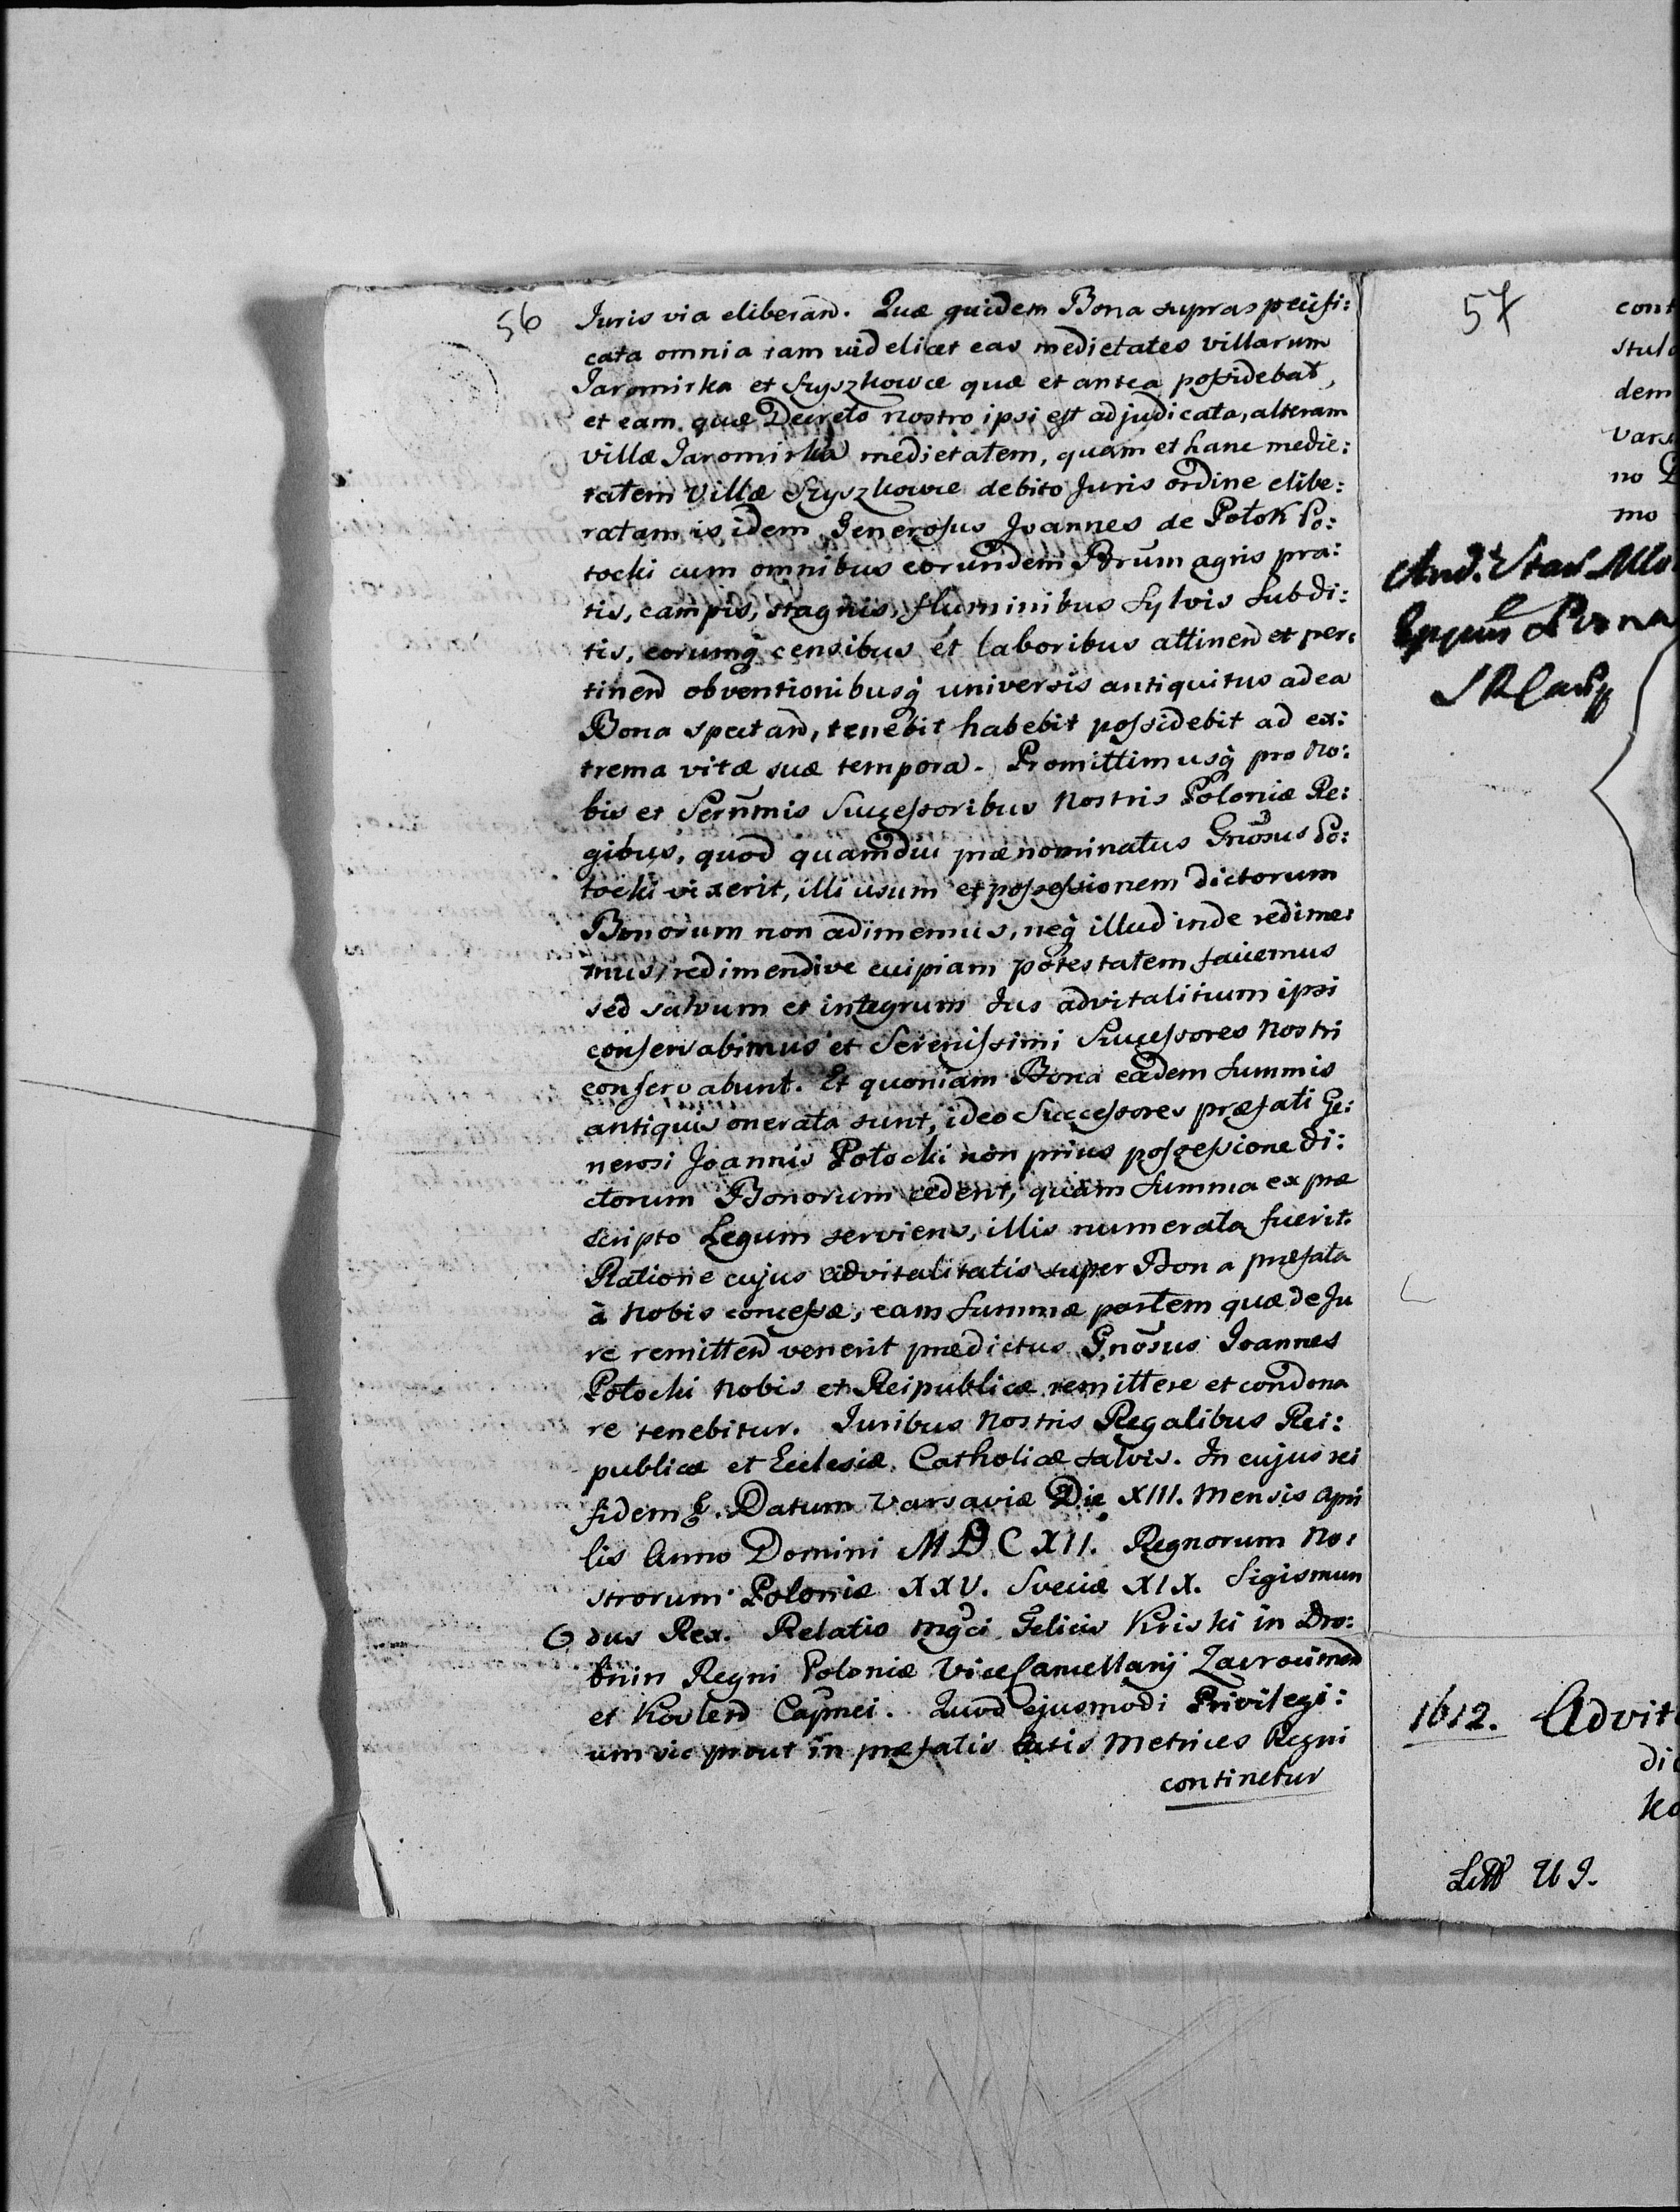 56
Juris via eliberand. Quæ quidem Bona supraspecifi:
cata omnia tam videlicet eas medietates villarum
Jaromirka et Szyszkowce quæ et antea possidebat,
et eam, quæ Decreto nostro ipsi est adjudicata, alteram
villæ Jaromirka medietatem, quam et hanc medie:
tatem villæ Szyszkowce debito Juris ordine elibe:
ratam is idem Generosus Joannes de Potok Po:
tocki cum omnibus eorundem Brum agris pra:
tis, campis, stagnis, fluminibus sylvis subdi:
tis, eorumq censibus et laboribus attinend et per:
tinend obventionibusq universis antiquitus ad ea
Bona spectand, tenebit habebit possidebit ad ex:
trema vitæ suæ tempora. Promittimusq pro No:
bis et Sernmis Successoribus Nostris Poloniæ Re:
gibus, quod quamdiu prænominatus Gnosus Po:
tocki vixerit, illi usum et possessionem dictorum
Bonorum non adimemus, neq illud inde redime:
mus, redimendive cuipiam potestatem faciemus
sed salvum et integrum Jus advitalitium ipsi
conservabimus et Serenissimi Successores Nostri
conservabunt. Et quoniam Bona eadem summis
antiquis onerata sunt, ideo Successores præfati Ge:
nerosi Joannis Potocki non prius possessione di:
ctorum Bonorum cedent, quam summa ex præ
scripto Legum serviens, illis numerata fuerit.
Ratione cujus advitalitatis super Bona præfata
à Nobis concessæ, eam summæ partem quæ de Ju
re remittend venerit prædictus Gnosus Joannes
Potocki Nobis et Reipublicæ remittere et condona
re tenebitur. Juribus Nostris Regalibus Rei:
publicæ et Ecclesiæ Catholicæ salvis. In cujus rei
fidem &. Datum Varsaviæ Die XIII. Mensis Apri
lis Anno Domini MDCXII. Regnorum No:
strorum Poloniæ XXV. Sveciæ XIX. Sigismun
dus Rex. Relatio Mgci Felicis Kriski in Dro:
bnin Regni Poloniæ ViceCancellarij
et Capnei. Quod ejusmodi Privilegi:
um sic prout in præfatis Actis Metrices Regni
continetur
57
cont
dem
Vars
no
mo
1612. Advit
di
ko